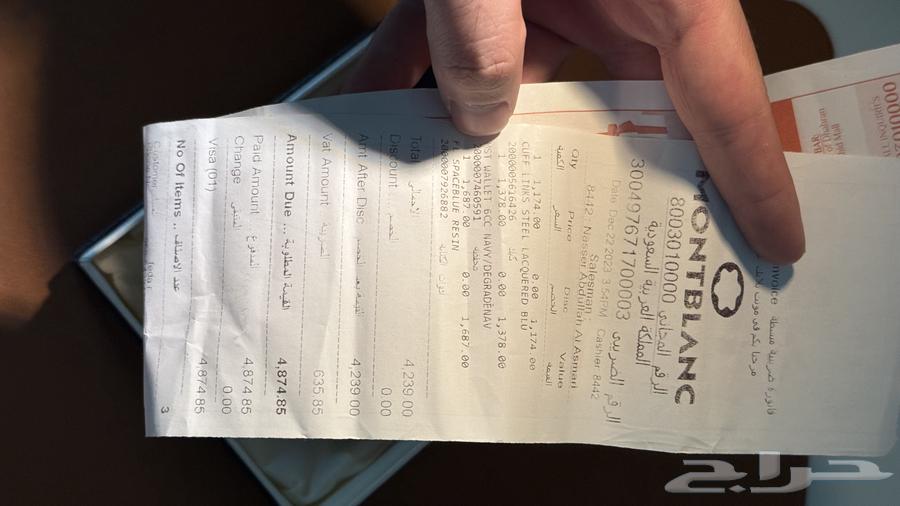 فاتورة ضريبية مبسطة
مرحبا بكم في مونت بلانك
MONTBLANC
الرقم المجاني 8003010000
المملكة العربية السعودية
الرقم الضريبي 300497671700003
Date Dec 22 2023 3:54PM Cashier 8442
Salesman
8442 : Nasser Abdullah Al Asmari
Qty Price Disc Value
الكمية السعر الخصم القيمة
1 1,174.00 0.00 1,174.00
CUFF LINKS STEEL LACQUERED BLU
2000005616426 كبك
1 1,378.00 0.00 1,378.00
ST WALLET 6CC NAVY/DEGRADENAV
2000007460591 محفظة
1 1,687.00 0.00 1,687.00
SPACEBLUE RESIN
2000007926882
Total الاجمالي 4,239.00
Discount الخصم 0.00
Amt After Disc 4,239.00
Vat Amount الضريبة 635.85
Amount Due ... القيمة المطلوبة 4,874.85
Paid Amount المدفوع 4,874.85
Change المتبقي 0.00
Visa (01) 4,874.85
No Of Items .. عدد الاصناف 3
Customer
حراج